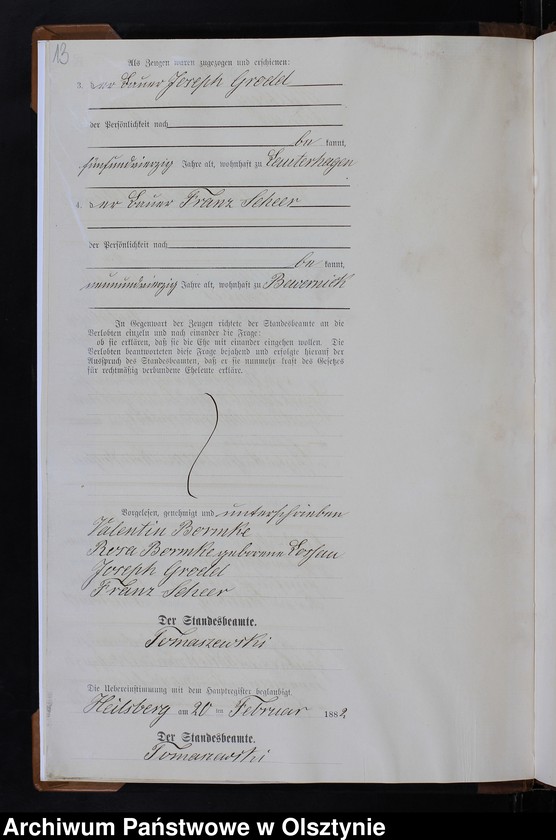 13
Als Zeugen waren zugezogen und erschienen:
3. der Bauer Joseph Grodd
der Persönlichkeit nach
be kannt,
fünfundvierzig Jahre alt, wohnhaft zu Lauterhagen
4. der Bauer Franz Scheer
der Persönlichkeit nach
be kannt,
neunundvierzig Jahre alt, wohnhaft zu Bewernick
In Gegenwart der Zeugen richtete der Standesbeamte an die
Verlobten einzeln und nach einander die Frage:
ob sie erklären, daß sie die Ehe mit einander eingehen wollen. Die
Verlobten beantworteten diese Frage bejahend und erfolgte hierauf der
Ausspruch des Standesbeamten, daß er sie nunmehr kraft des Gesetzes
für rechtmäßig verbundene Eheleute erkläre.
Vorgelesen, genehmigt und unterschrieben
Valentin Bormke
Rosa Bormke geborene Lossau
Joseph Grodd
Franz Scheer
Der Standesbeamte.
Tomaszewski
Die Uebereinstimmung mit dem Hauptregister beglaubigt.
Heilsberg am 20 ten Februar 1882
Der Standesbeamte.
Tomaszewski
Archiwum Państwowe w Olsztynie